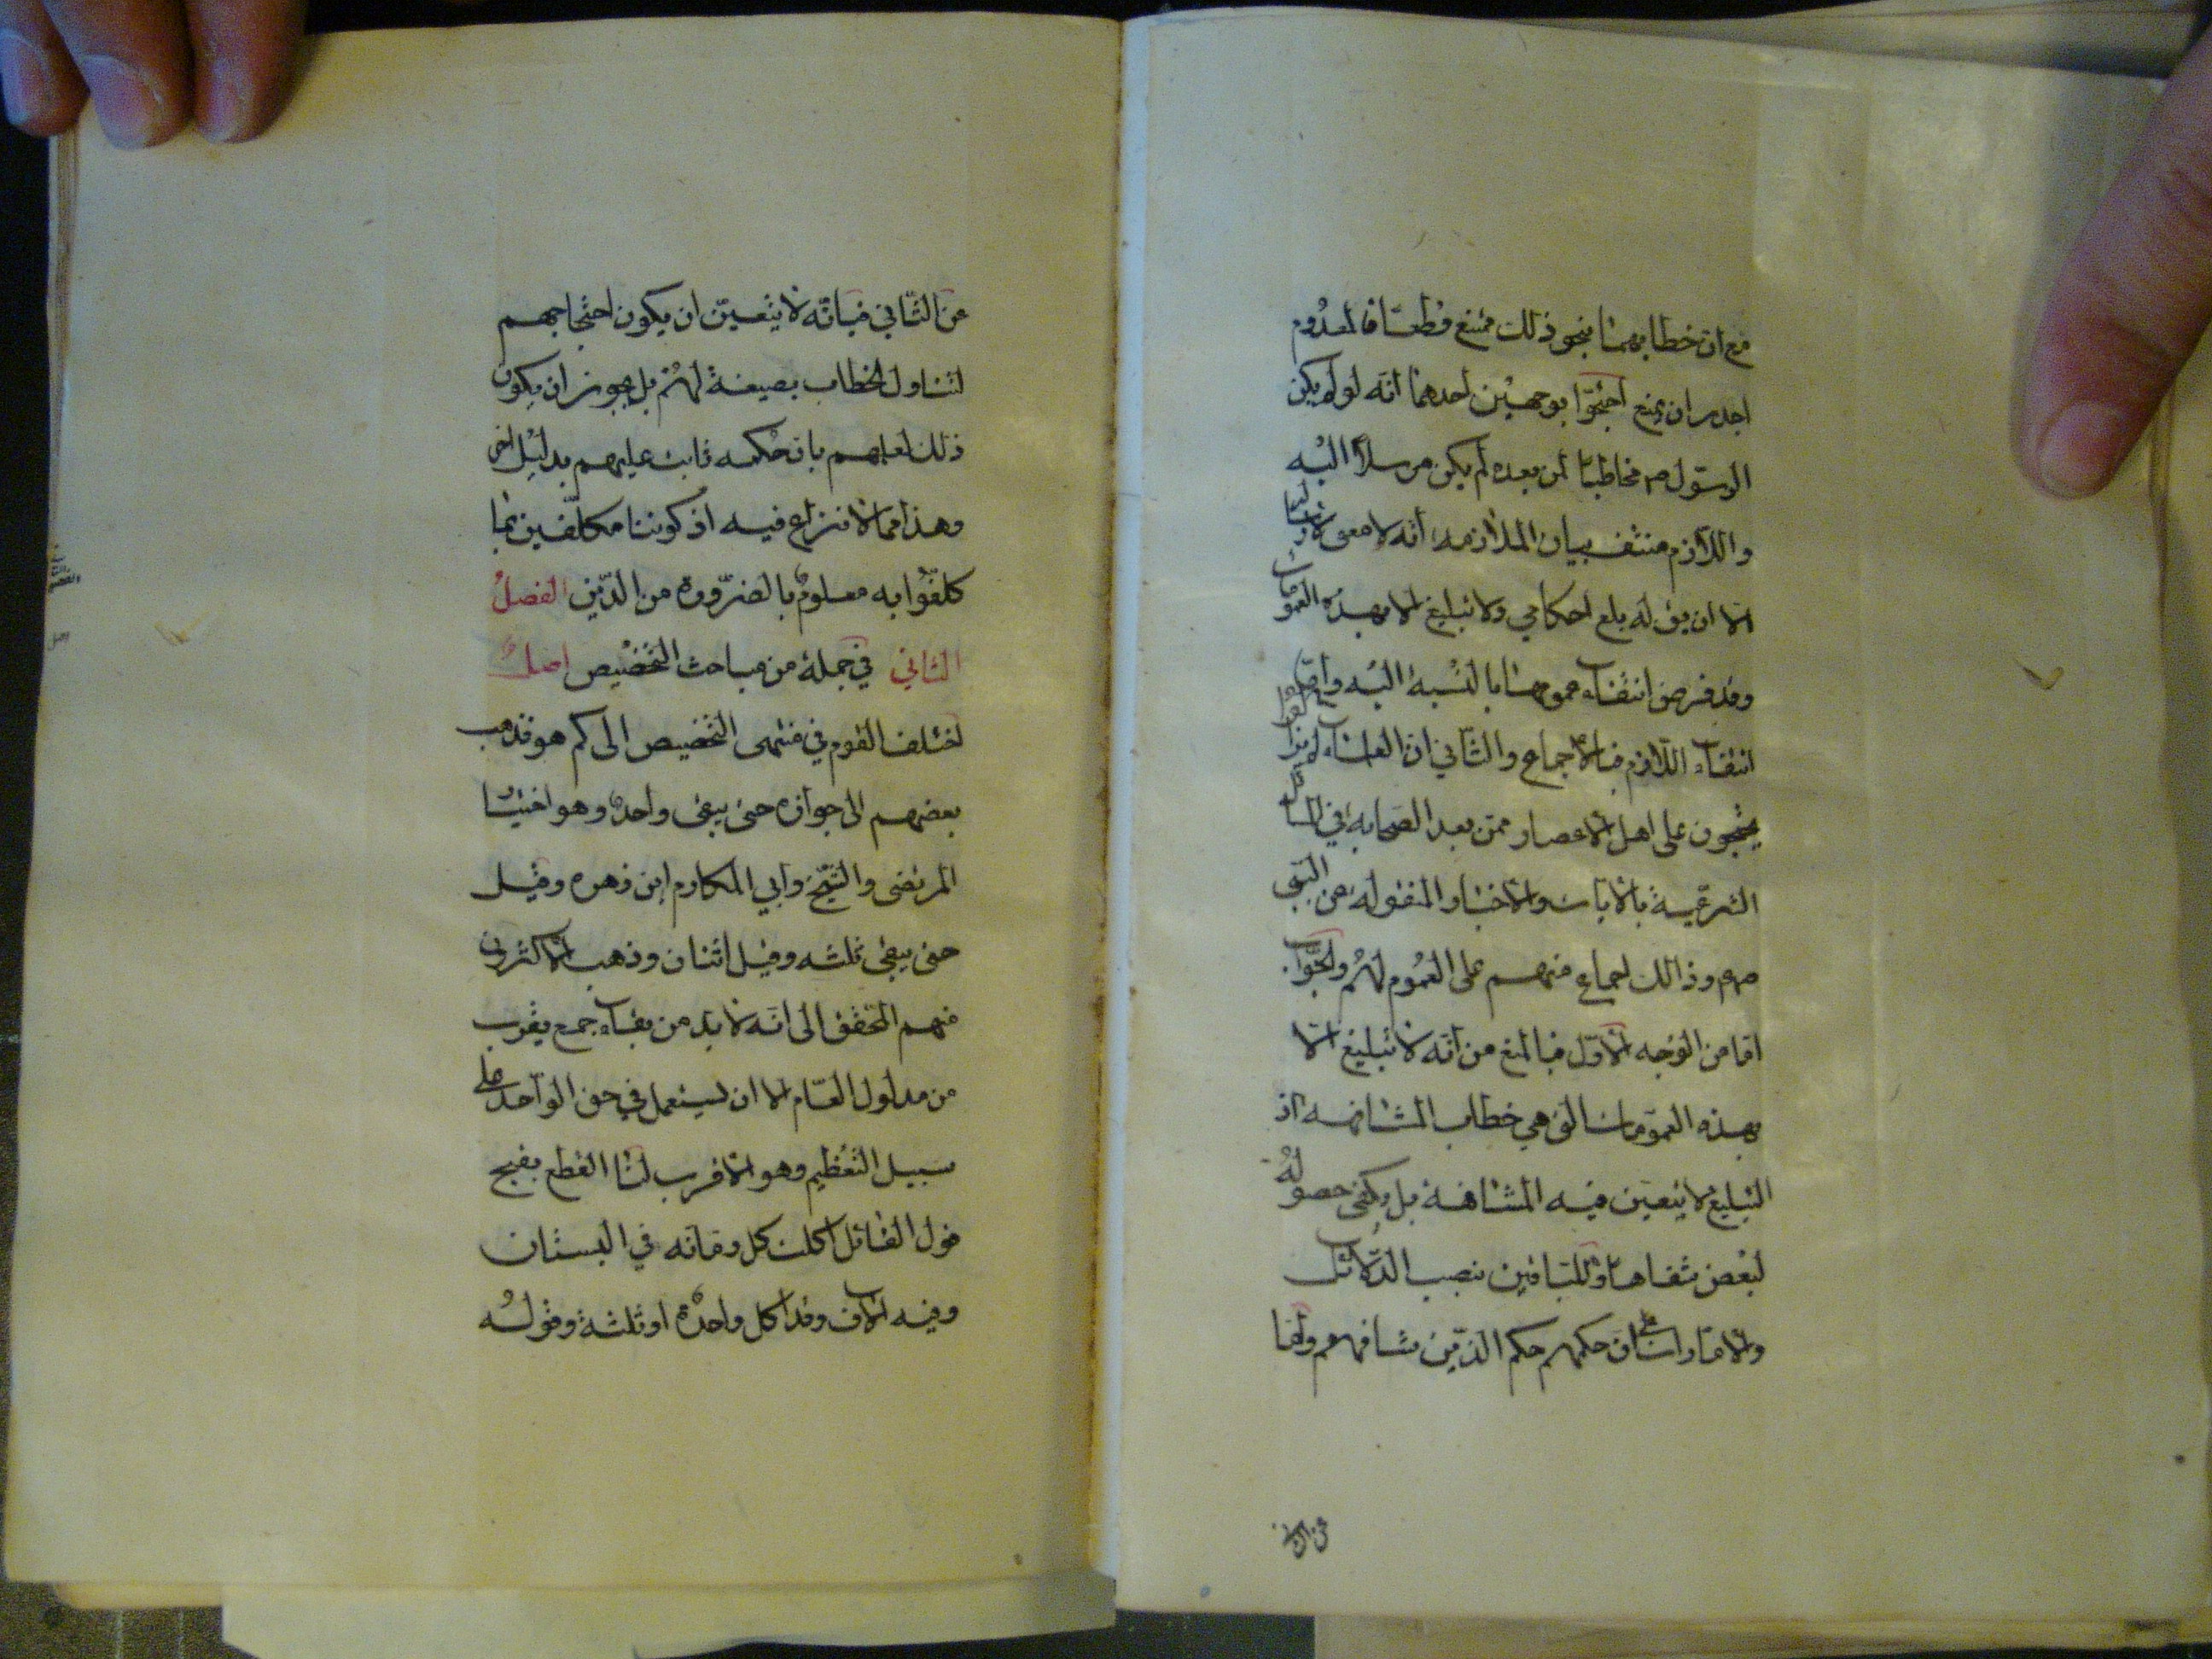 مع ان خطابهما بنحو ذلك ممتنع قطعا فالمعدوم
اجدر ان يمنع احتجوا بوجهين احدهما انه لو لم يكن
الرسول ص مخاطبا لمن بعده لم يكن مرسلا اليه
واللازم منتف بيان الملازمه انه لا معنى لارساله
الا ان يق له بلغ احكامي ولا تبليغ الا بهذه العمومات
وقد فرض انتفاء عمومها بالنسبة اليه واما
انتفاء اللازم فبالاجماع والثاني ان العلماء لم يزالوا
يحتجون على اهل الاعصار ممن بعد الصحابه في المسائل
الشرعية بالايات والاخبار المنقوله عن النبي
ص وذالك اجماع منهم على العموم لهم والجواب
اما من الوجه الاول فبالمنع من انه لا تبليغ الا
بهذه العمومات التي هي خطاب المشافهه اذ
التبليغ لا يتعين فيه المشافهة بل يكفي حصوله
لبعض شفاها وللباقين بنصب الدلائل
والامارات على ان حكمهم حكم الذين شافههم واما
عن الثاني
عن الثاني فبانه لا يتعين ان يكون احتجاجهم
لتناول الخطاب بصيغة لهم بل يجوز ان يكون
ذلك لعلمهم بان حكمه ثابت عليهم بدليل اخر
وهذا مما لا نزاع فيه اذ كوننا مكلفين بما
كلفوا به معلوم بالضرورة من الدين الفصل
الثاني في جملة من مباحث التخصيص اصل
اختلف القوم في منتهى التخصيص الى كم هو فذهب
بعضهم الى جوازه حتى يبقى واحد وهو اختيار
المرتضى والشيخ وابي المكارم ابن زهره وقيل
حتى يبقى ثلثه وقيل اثنان وذهب الاكثرون
منهم المحقق الى انه لا بد من بقاء جمع يقرب
من مدلول العام الا ان يستعمل في حق الواحد على
سبيل التعظيم وهو الاقرب لنا القطع بقبح
قول القائل اكلت كل رمانه في البستان
وفيه الاف وقد اكل واحدة او ثلثة وقوله